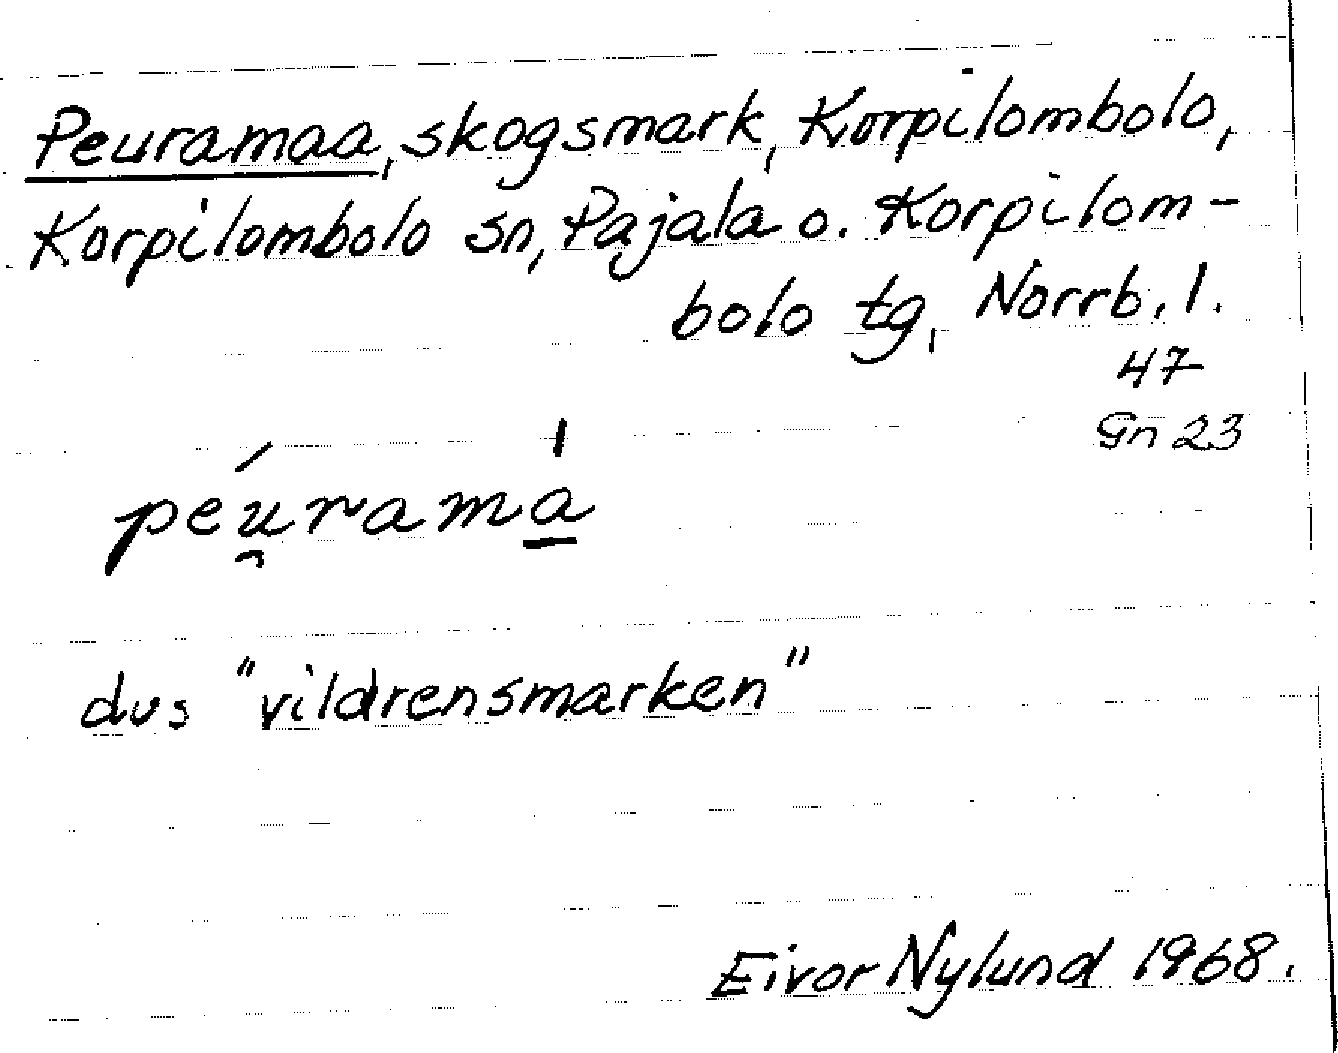 Peuramaa, skogsmark, Korpilombolo,
Korpilombolo sn, Pajala o. Korpilom-
bolo tg, Norrb. l.
47
Gn 23
peu̯rama̱
dvs "vildrensmarken"
Eivor Nylund 1968.